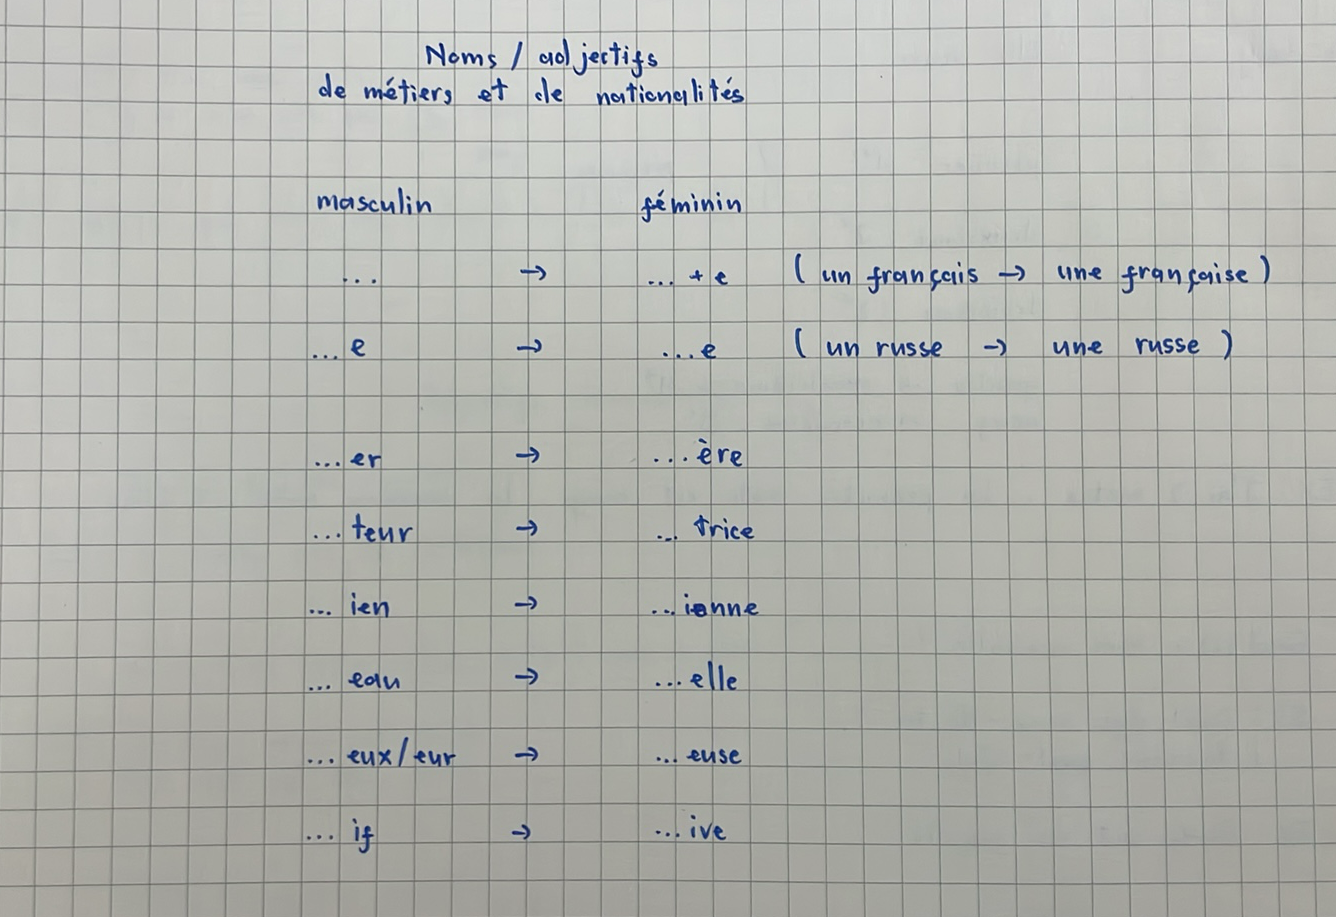 Noms / adjectifs
de métiers et de nationalités
masculin féminin
... → ... + e ( un français → une française )
... e → ... e ( un russe → une russe )
... er → ... ère
... teur → ... trice
... ien → ... ienne
... eau → ... elle
... eux/eur → ... euse
... if → ... ive